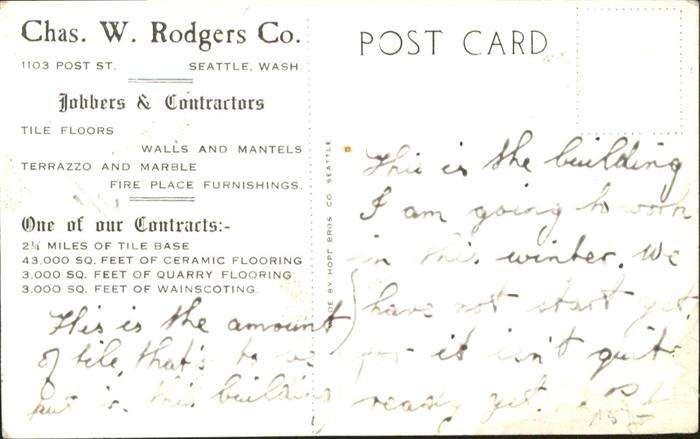 Chas. W. Rodgers Co.
1103 POST ST. SEATTLE, WASH.
Jobbers & Contractors
TILE FLOORS
WALLS AND MANTELS
TERRAZZO AND MARBLE
FIRE PLACE FURNISHINGS.
One of our Contracts:-
2¼ MILES OF TILE BASE
43,000 SQ. FEET OF CERAMIC FLOORING
3,000 SQ. FEET OF QUARRY FLOORING
3,000 SQ. FEET OF WAINSCOTING.
This is the amount
of tile that's to be
put in this building
BY HOPF BROS CO SEATTLE
POST CARD
This is the building
I am going to work
in this winter. We
have not start yet
for it isn't quite
ready yet.